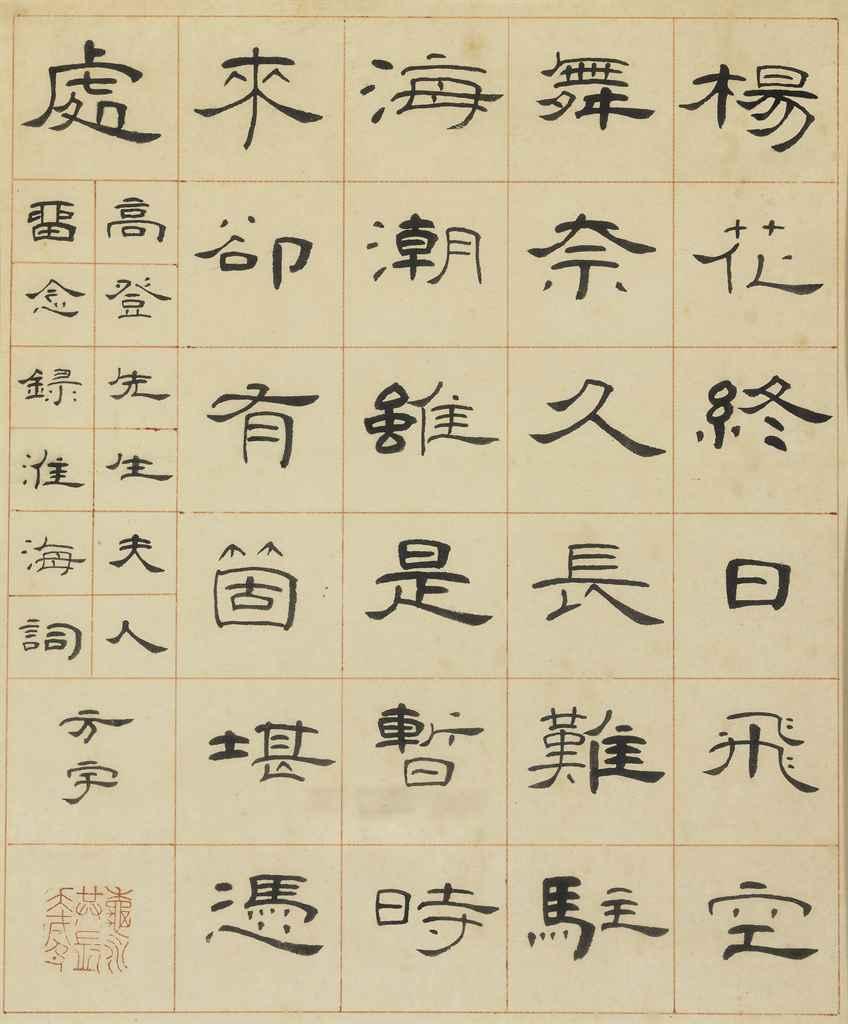 楊花終日飛空
舞奈久長難駐
海潮雖是暫時
來卻有箇堪憑
處
高登先生夫人
畱念錄淮海詞
方宇